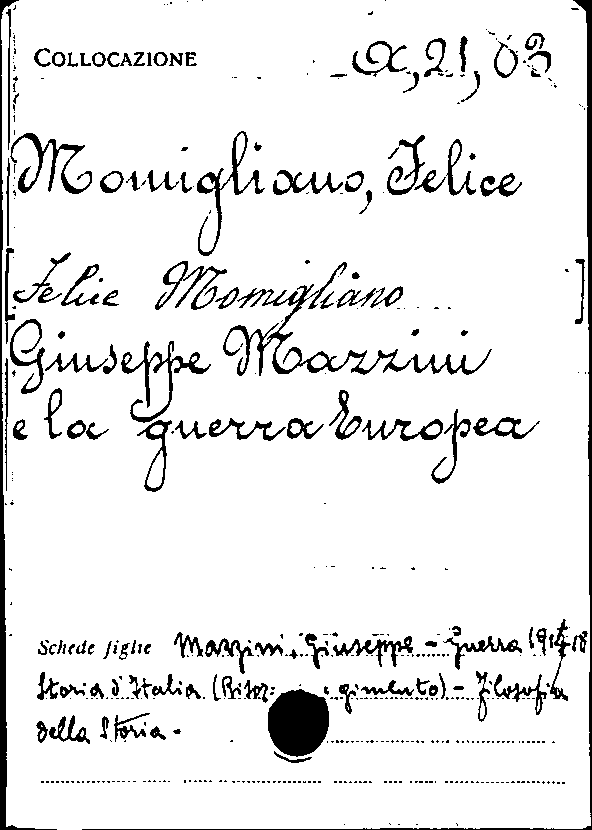 COLLOCAZIONE α, 21, 83
Momigliano, Felice
[Felice Momigliano]
Giuseppe Mazzini
e la guerra Europea
Schede figlie Mazzini, Giuseppe - Guerra 1914-18
Storia d'Italia (Risorgimento) - Filosofia
della Storia -